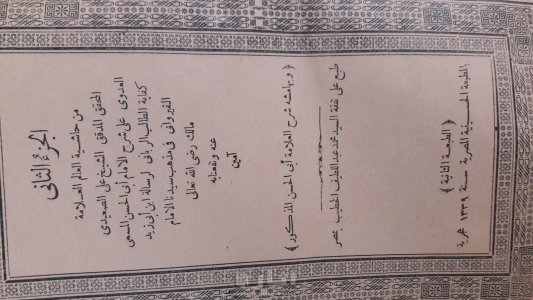 الجزء الثانى
من حاشية العالم العلامة
المحقق المدقق الشيخ على الصعيدى
العدوى على شرح الامام أبى الحسن المسمى
كفاية الطالب الربانى لرسالة ابن أبى زيد
القيروانى فى مذهب سيدنا الامام
مالك رضى الله تعالى
عنه ونفعنا به
آمين
﴿ وبهامشه شرح العلامة أبى الحسن المذكور ﴾
طبع على نفقة السيد محمد عبد اللطيف الخطيب بمصر
﴿ الطبعة الثانية ﴾
بالمطبعة الحسينية المصرية سنة ١٣٣٩ هجرية